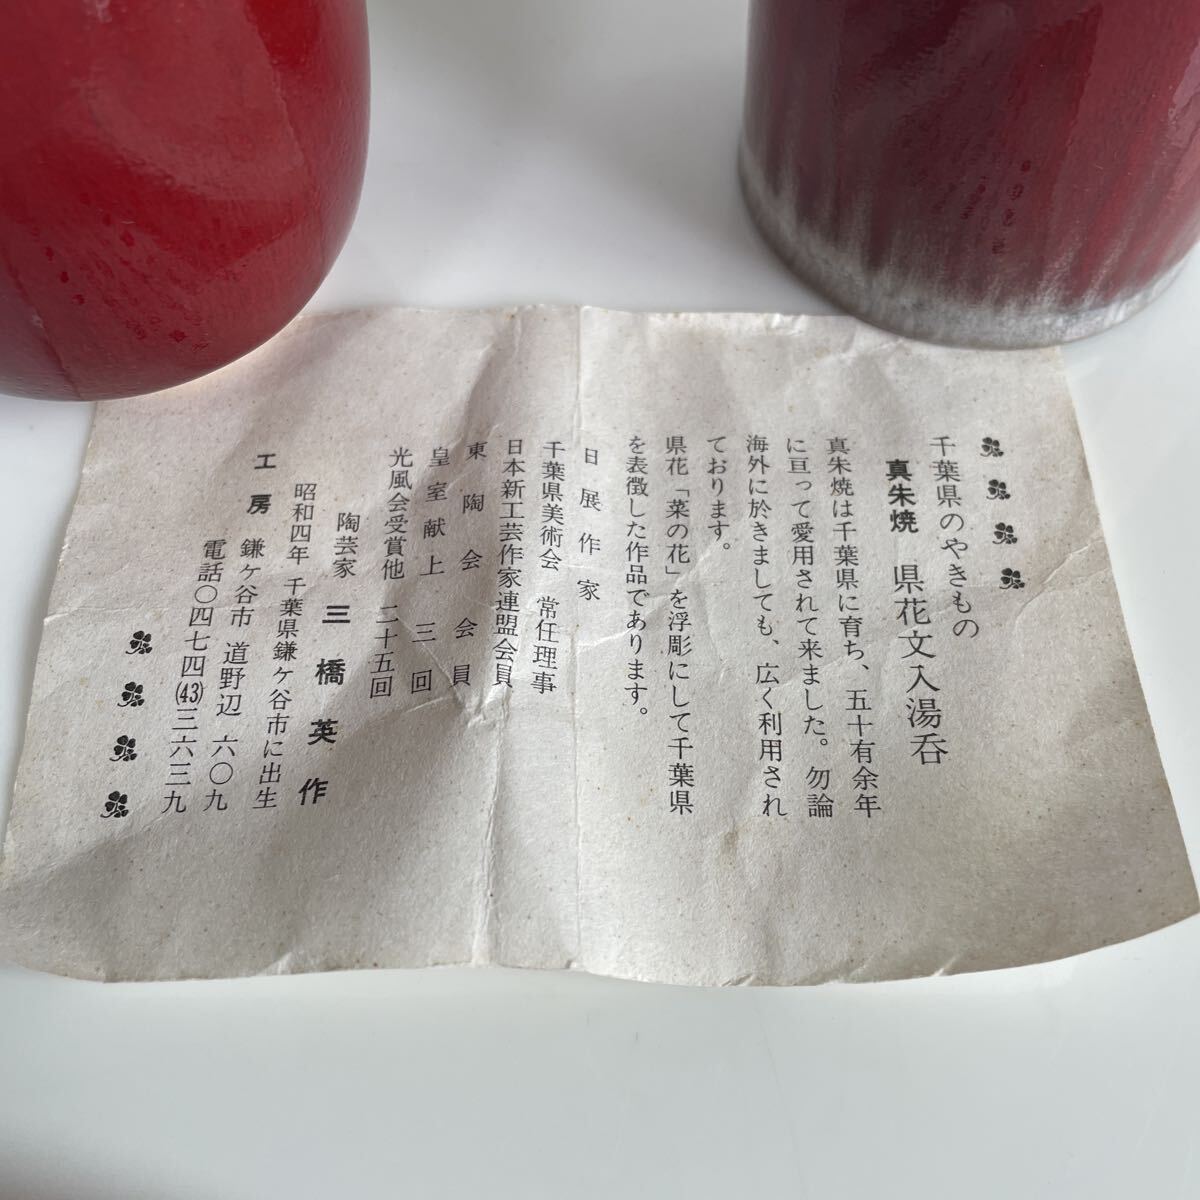 千葉県のやきもの
真朱焼 県花文入湯呑
真朱焼は千葉県に育ち、五十有余年
に亘って愛用されて来ました。勿論
海外に於きましても、広く利用され
ております。
県花「菜の花」を浮彫にして千葉県
を表徴した作品であります。
日展作家
千葉県美術会 常任理事
日本新工芸作家連盟会員
東陶会会員
皇室献上 三回
光風会受賞他 二十五回
陶芸家 三橋英作
昭和四年 千葉県鎌ヶ谷市に出生
工房 鎌ヶ谷市 道野辺 六〇九
電話〇四七四(43)三六三九